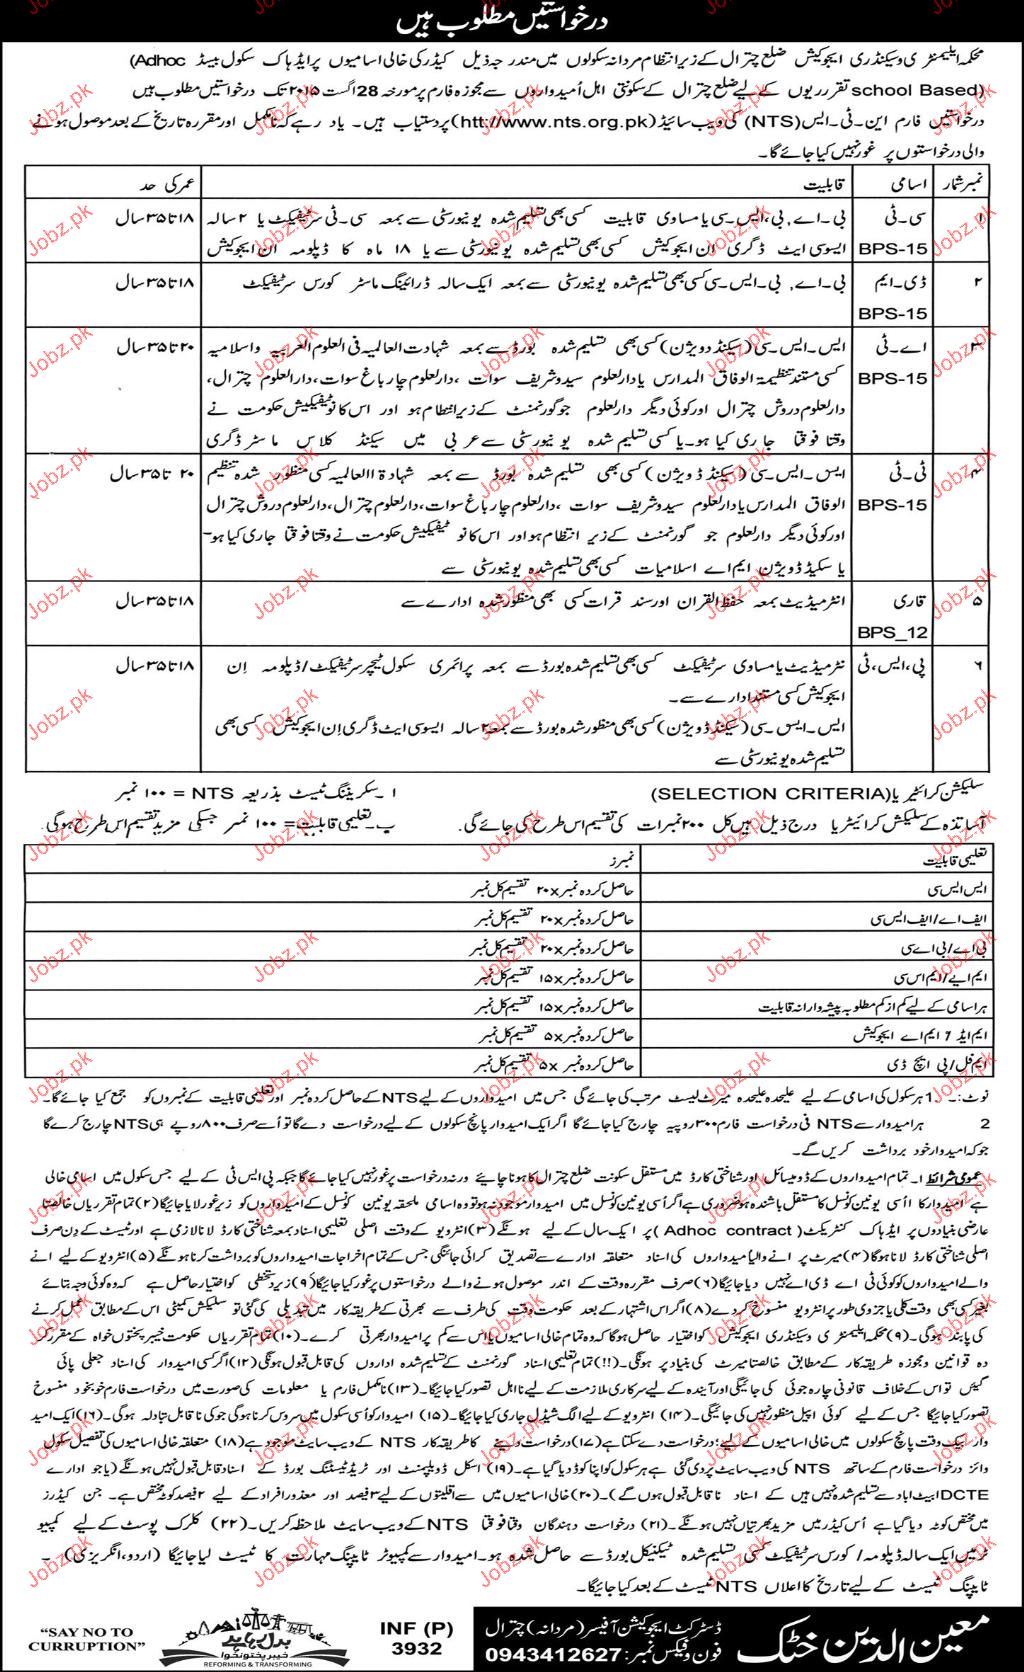 درخواستیں مطلوب ہیں
محکمہ ایلیمنٹری وسیکنڈری ایجوکیشن ضلع چترال کے زیر انتظام مردانہ سکولوں میں مندرجہ ذیل کیڈر کی خالی اسامیوں پر ایڈہاک سکول بیسڈ (Adhoc
school Based) تقرریوں کے لیے ضلع چترال کے سکونتی اہل اُمیدواروں سے مجوزہ فارم پر مورخہ 28 اگست ۲۰۱۵ تک درخواستیں مطلوب ہیں
درخواستیں فارم این۔ٹی۔ایس (NTS) کی ویب سائیڈ (htt://www.nts.org.pk) پر دستیاب ہیں۔ یاد رہے کہ نامکمل اور مقررہ تاریخ کے بعد موصول ہونے
والی درخواستوں پر غور نہیں کیا جائے گا۔
نمبر شمار اسامی قابلیت عمر کی حد
۱ سی۔ٹی بی۔اے، بی،ایس۔سی یا مساوی قابلیت کسی بھی تسلیم شدہ یونیورسٹی سے بمعہ سی۔ٹی سرٹیفکیٹ یا ۲ سالہ ۱۸ تا ۳۵ سال
BPS-15 ایسوسی ایٹ ڈگری اِن ایجوکیشن کسی بھی تسلیم شدہ یونیورسٹی سے یا ۱۸ ماہ کا ڈپلومہ اِن ایجوکیشن
۲ ڈی۔ایم بی۔اے، بی۔ایس۔سی کسی بھی تسلیم شدہ یونیورسٹی سے بمعہ ایک سالہ ڈرائینگ ماسٹر کورس سرٹیفکیٹ ۱۸ تا ۳۵ سال
BPS-15
۳ اے۔ٹی ایس۔ایس۔سی (سیکنڈ ڈویژن) کسی بھی تسلیم شدہ بورڈ سے بمعہ شہادت العالمیہ فی العلوم العربیہ واسلامیہ ۲۰ تا ۳۵ سال
BPS-15 کسی مستند تنظیمۃ الوفاق المدارس یا دارلعلوم سیدو شریف سوات، دارلعلوم چارباغ سوات، دارالعلوم چترال،
دارلعلوم دروش چترال اور کوئی دیگر دارلعلوم جو گورنمنٹ کے زیر انتظام ہو اور اس کا نوٹیفیکیشن حکومت نے
وقتا فوقتا جاری کیا ہو۔ یا کسی تسلیم شدہ یونیورسٹی سے عربی میں سیکنڈ کلاس ماسٹر ڈگری
۴ ٹی۔ٹی ایس۔ایس۔سی (سیکنڈ ڈویژن) کسی بھی تسلیم شدہ بورڈ سے بمعہ شہادۃ االعالمیہ کسی منظور شدہ تنظیم ۲۰ تا ۳۵ سال
BPS-15 الوفاق المدارس یا دارلعلوم سیدو شریف سوات، دارلعلوم چارباغ سوات، دارلعلوم چترال، دارلعلوم دروش چترال
اور کوئی دیگر دارلعلوم جو گورنمنٹ کے زیر انتظام ہو اور اس کا نوٹیفیکیشن حکومت نے وقتا فوقتا جاری کیا ہو۔
یا سیکنڈ ڈویژن ایم اے اسلامیات کسی بھی تسلیم شدہ یونیورسٹی سے
۵ قاری انٹرمیڈیٹ بمعہ حفظ القران اور سند قرات کسی بھی منظور شدہ ادارے سے ۱۸ تا ۳۵ سال
BPS_12
۶ پی،ایس،ٹی نٹرمیڈیٹ یا مساوی سرٹیفکیٹ کسی بھی تسلیم شدہ بورڈ سے بمعہ پرائمری سکول ٹیچر سرٹیفکیٹ/ڈپلومہ اِن ۱۸ تا ۳۵ سال
ایجوکیشن کسی مستند ادارے سے۔
ایس۔ایس۔سی (سیکنڈ ڈویژن) کسی بھی منظور شدہ بورڈ سے بمعہ ۲ سالہ ایسوسی ایٹ ڈگری اِن ایجوکیشن کسی بھی
تسلیم شدہ یونیورسٹی سے
سلیکشن کرائٹیریا (SELECTION CRITERIA) ا۔سکریننگ ٹیسٹ بذریعہ NTS = ۱۰۰ نمبر
آساتذہ کے سلیکشن کرائیٹریا درج ذیل ہیں کل ۲۰۰ نمبرات کی تقسیم اس طرح کی جائے گی۔ ب۔تعلیمی قابلیت = ۱۰۰ نمبر جسکی مزید تقسیم اس طرح ہوگی۔
تعلیمی قابلیت نمبرز
ایس ایس سی حاصل کردہ نمبر x ۲۰ تقسیم کل نمبر
ایف اے/ایف ایس سی حاصل کردہ نمبر x ۲۰ تقسیم کل نمبر
بی اے/بی اے سی حاصل کردہ نمبر x ۲۰ تقسیم کل نمبر
ایم اے/ایم اس سی حاصل کردہ نمبر x ۱۵ تقسیم کل نمبر
ہر اسامی کے لیے کم از کم مطلوبہ پیشہ وارانہ قابلیت حاصل کردہ نمبر x ۱۵ تقسیم کل نمبر
ایم ایڈ / ایم اے ایجوکیشن حاصل کردہ نمبر x ۵ تقسیم کل نمبر
ایم فل/پی ایچ ڈی حاصل کردہ نمبر x ۵ تقسیم کل نمبر
نوٹ:۔ 1 ہر سکول کی اسامی کے لیے علیحدہ علیحدہ میرٹ لیسٹ مرتب کی جائے گی جس میں امیدواروں کے لیے NTS کے حاصل کردہ نمبر اور تعلیمی قابلیت کے نمبروں کو جمع کیا جائے گا۔
2 ہر امیدوار سے NTS فی درخواست فارم ۳۰۰ روپیہ چارج کیا جائے گا اگر ایک امیدوار پانچ سکولوں کے لیے درخواست دے گا تو اُسے صرف ۸۰۰ روپے ہی NTS چارج کرے گا
جو کہ امیدوار خود برداشت کریں گے۔
عمومی شرائط ۱۔ تمام امیدواروں کے ڈومیسائل اور شناختی کارڈ میں مستقل سکونت ضلع چترال کا ہونا چاہیے ورنہ درخواست پر غور نہیں کیا جائے گا جبکہ پی ایس ٹی کے لیے جس سکول میں اسامی خالی
ہے اُمیدوار کا اُسی یونین کونسل کا مستقل باشندہ ہونا ضروری ہے اگر اُسی یونین کونسل میں امیدوار موجود نہ ہو تو وہ اسامی ملحقہ یونین کونسل کے امیدواروں کو زیر غور لایا جائیگا (۲) تمام تقرریاں خالصتا
عارضی بنیادوں پر ایڈہاک کنٹریکٹ (Adhoc contract) پر ایک سال کے لیے ہونگے (۳) انٹرویو کے وقت اصلی تعلیمی اسناد بمعہ شناختی کارڈ لانا لازمی ہے اور ٹیسٹ کے دِن صرف
اصلی شناختی کارڈ لانا ہوگا (۴) میرٹ پر آنے والیا میدواروں کی اسناد متعلقہ ادارے سے تصدیق کرائی جائنگی جس کے تمام اخراجات امیدواروں کو برداشت کرنا ہونگے (۵) انٹرویو کے لیے آنے
والے امیدواروں کو کوئی ٹی اے ڈی اے نہیں دیا جائیگا (۶) صرف مقررہ وقت کے اندر موصول ہونے والے درخواستوں پر غور کیا جائیگا (۹) زیر دستخطی کو اختیار حاصل ہے کہ وہ کوئی وجہ بتائے
بغیر کسی بھی وقت کلی یا جزوی طور پر انٹرویو منسوخ کر دے (۸) اگر اس اشتہار کے بعد حکومت وقت کی طرف سے بھرتی کے طریقہ کار میں تبدیلی کی گئی تو سلیکشن کمیٹی اس کے مطابق عمل کرنے
کی پابند ہوگی۔ (۹) محکمہ ایلیمنٹری وسیکنڈری ایجوکیشن کو اختیار حاصل ہوگا کہ وہ تمام خالی اسامیوں یا اس سے کم پر امیدوار بھرتی کرے۔ (۱۰) تمام تقرریاں حکومت خیبر پختون خواہ کے مقرر کر
دہ قوانین ومجوزہ طریقہ کار کے مطابق خالصتا میرٹ کی بنیاد پر ہونگی۔ (!!) تمام تعلیمی اسناد گورنمنٹ کے تسلیم شدہ اداروں کی قابل قبول ہونگی (۱۲) اگر کسی امیدوار کی اسناد جعلی پائی
گئیں تو اس کے خلاف قانونی چارہ جوئی کی جائیگی اور آیندہ کے لیے سرکاری ملازمت کے لیے نا اہل تصور کیا جائیگا۔ (۱۳) نامکمل فارم یا معلومات کی صورت میں درخواست فارم خود بخود منسوخ
تصور کیا جائیگا جس کے لیے کوئی اپیل منظور نہیں کی جائیگی۔ (۱۴) انٹرویو کے لیے الگ شیڈول جاری کیا جائیگا۔ (۱۵) امیدوار کو اُسی سکول میں سروس کرنا ہوگی جو کی نا قابل تبادلہ ہوگی۔ (۱۶) ایک امید
وار بیک وقت پانچ سکولوں میں خالی اسامیوں کے لیے درخواست دے سکتا ہے (۱۷) درخواست دینے کا طریقہ کار NTS کے ویب سایٹ موجود ہے (۱۸) متعلقہ خالی اسامیوں کی تفصیل سکول
وائز درخواست فارم کے ساتھ NTS کی ویب سایٹ پر دی گئی ہے ہر سکول کو اپنا کوڈ دیا گیا ہے۔ (۱۹) اسکل ڈویلپمنٹ اور ٹریڈ ٹیسٹنگ بورڈ کے اسناد قابل قبول نہیں ہونگے (یا جو ادارے
DCTE ایبٹ آباد سے تسلیم شدہ نہیں ہیں کے اسناد نا قابل قبول ہوں گے)۔ (۲۰) خالی اسامیوں میں سے اقلیتوں کے لیے ۳ فیصد اور معذور افراد کے لیے ۲ فیصد کوٹہ مختص ہے۔ جن کیڈرز
میں مختص کوٹہ دیا گیا ہے اُس کیڈر میں مزید بھرتیاں نہیں ہونگے۔ (۲۱) درخواست دہندگان وقتا فوقتا NTS کے ویب سایٹ ملاحظہ کریں۔ (۲۲) کلرک پوسٹ کے لیے کمپیو
ٹر میں ایک سالہ ڈپلومہ/کورس سرٹیفکیٹ کسی تسلیم شدہ ٹیکنیکل بورڈ سے حاصل شدہ ہو۔ امیدوار سے کمپیوٹر ٹایپنگ مہارت کا ٹیسٹ لیا جائیگا (اردو، انگریزی)۔
ٹایپنگ ٹیسٹ کے لیے تاریخ کا اعلان NTS ٹیسٹ کے بعد کیا جائیگا۔
معین الدین خٹک
ڈسٹرکٹ ایجوکیشن آفیسر (مردانہ) چترال
فون وفیکس نمبر: 0943412627
INF (P)
3932
بدل رہا ہے
خیبر پختونخوا
REFORMING & TRANSFORMING
“SAY NO TO
CURRUPTION”
Jobz.pk